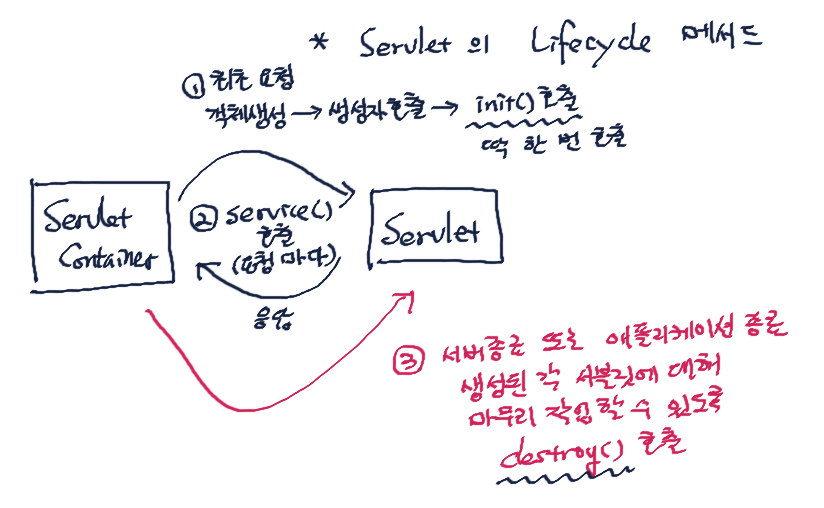 * Servlet의 Lifecycle 메서드
① 최초 요청
객체생성 → 생성자호출 → init() 호출
딱 한 번 호출
Servlet
Container
② service()
호출
(요청 마다)
Servlet
응답
③ 서버종료 또는 애플리케이션 종료
생성된 각 서블릿에 대해
마무리 작업할 수 있도록
destroy() 호출